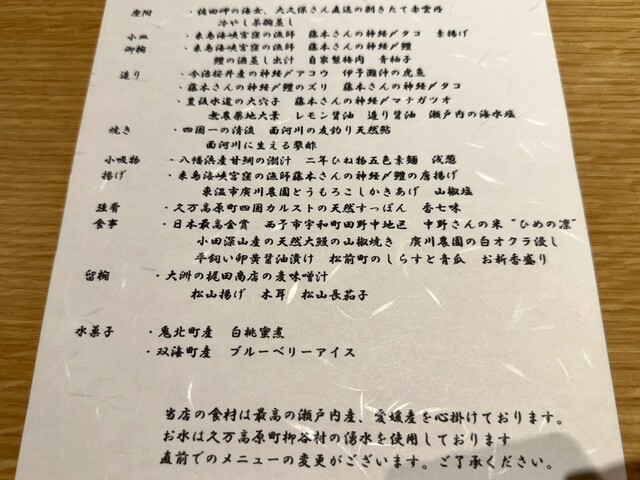 座附 ・佐田岬の海女、大久保さん直送の剥きたて赤雲丹
冷やし茶碗蒸し
小皿 ・来島海峡宮窪の漁師 藤本さんの神経〆タコ 素揚げ
御椀 ・来島海峡宮窪の漁師 藤本さんの神経〆鱧
鱧の酒蒸し出汁 自家製梅肉 青柚子
造り ・今治桜井産の神経〆アコウ 伊予灘沖の虎魚
・藤本さんの神経〆鱧のズリ ・藤本さんの神経〆タコ
・豊後水道の大穴子 藤本さんの神経〆マナガツオ
無農薬地大葉 レモン醤油 造り醤油 瀬戸内の海水塩
焼き ・四国一の清流 面河川の友釣り天然鮎
面河川に生える蓼酢
小吸物 ・八幡浜産甘鯛の潮汁 二年ひね物五色素麺 浅葱
揚げ ・来島海峡宮窪の漁師藤本さんの神経〆鱧の唐揚げ
東温市廣川農園とうもろこしかきあげ 山椒塩
強肴 ・久万高原町四国カルストの天然すっぽん 香七味
食事 ・日本最高金賞 西予市宇和町田野中地区 中野さんの米 "ひめの凛"
小田深山産の天然大鰻の山椒焼き 廣川農園の白オクラ浸し
平飼い卵黄醤油漬け 松前町のしらすと青瓜 お新香盛り
留椀 ・大洲の梶田商店の麦味噌汁
松山揚げ 木耳 松山長茄子
水菓子 ・鬼北町産 白桃蜜煮
・双海町産 ブルーベリーアイス
当店の食材は最高の瀬戸内産、愛媛産を心掛けております。
お水は久万高原町柳谷村の湧水を使用しております
直前でのメニューの変更がございます。ご了承ください。